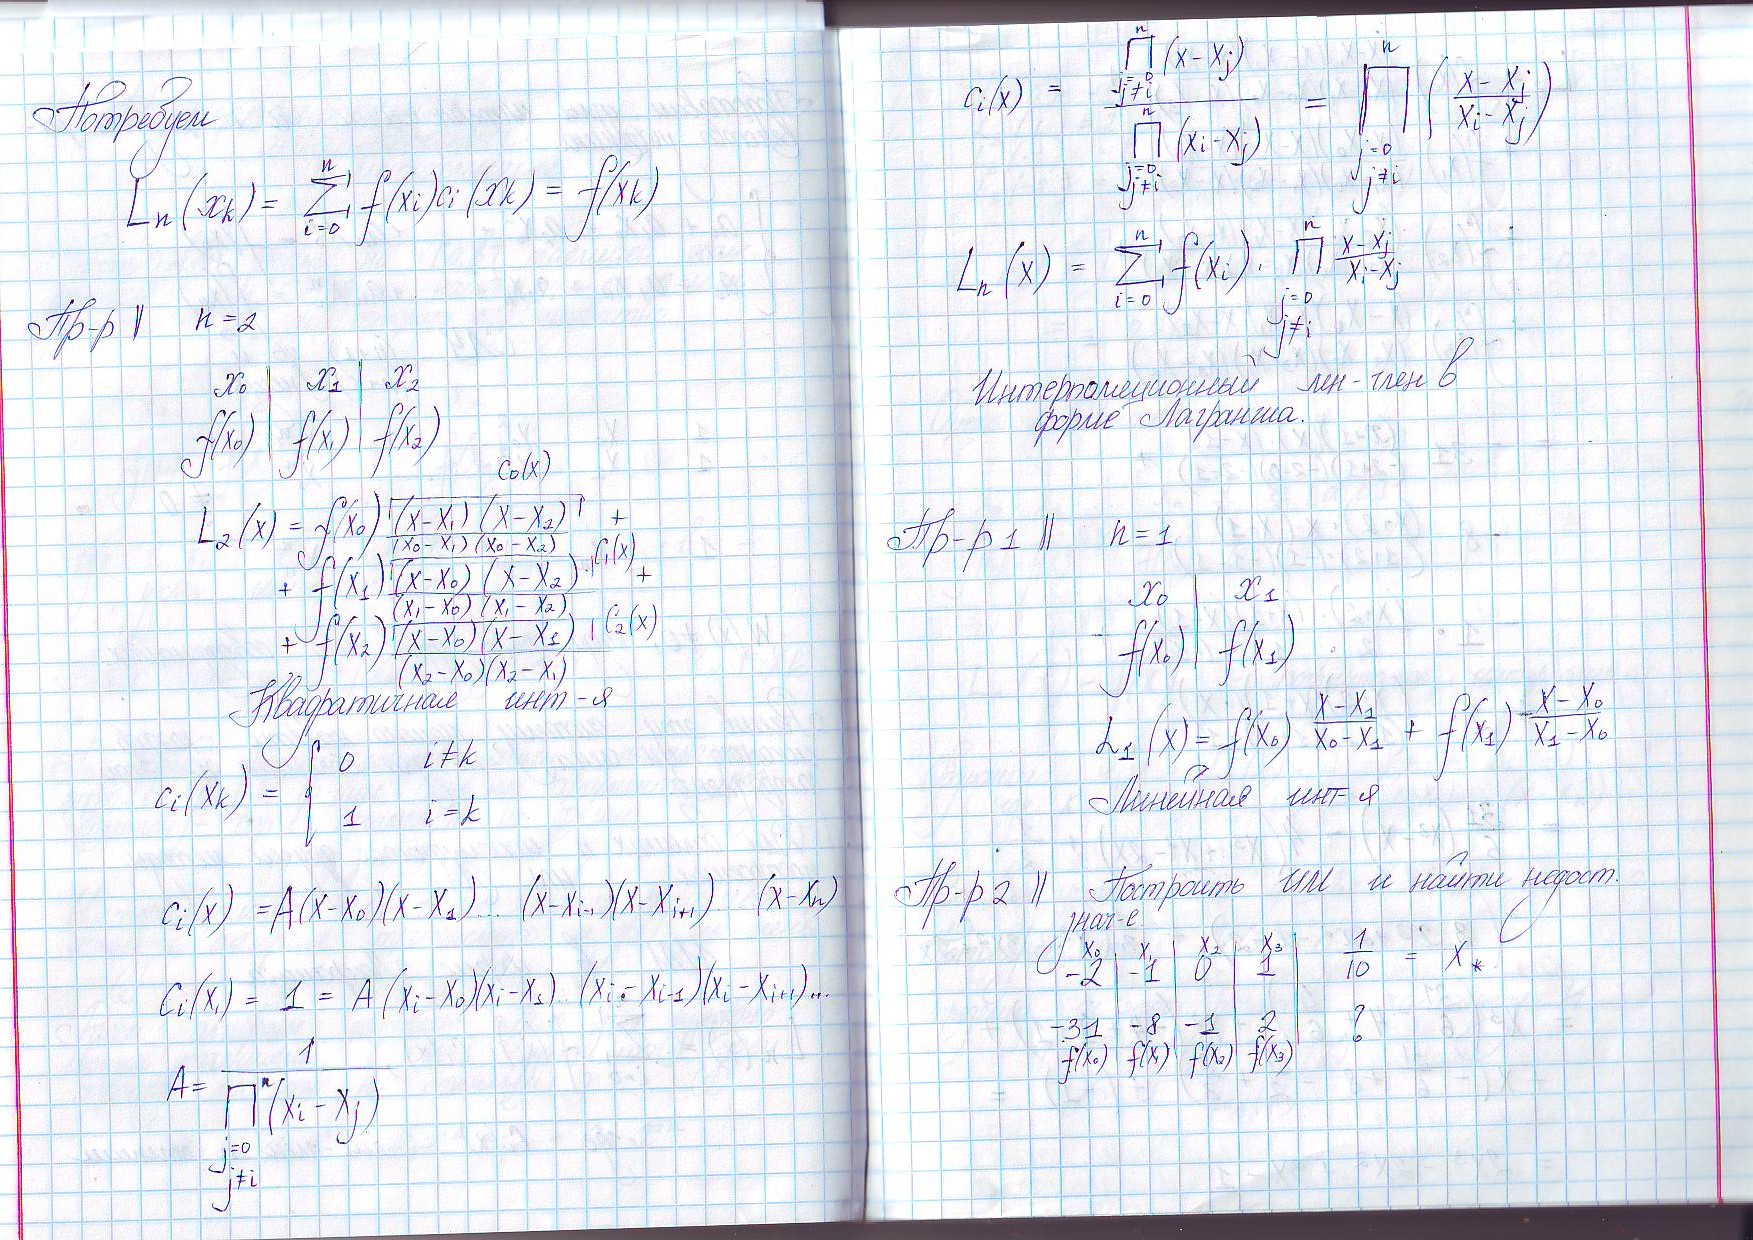 Потребуем
Lₙ(xₖ) = ∑ᵢ₌₀ⁿ f(xᵢ)cᵢ(xₖ) = f(xₖ)
Пр-р || n = 2
x₀ | x₁ | x₂
f(x₀) | f(x₁) | f(x₂)
c₀(x)
L₂(x) = f(x₀) (x-x₁)(x-x₂)/(x₀-x₁)(x₀-x₂) +
+ f(x₁) (x-x₀)(x-x₂)/(x₁-x₀)(x₁-x₂) c₁(x) +
+ f(x₂) (x-x₀)(x-x₁)/(x₂-x₀)(x₂-x₁) c₂(x)
Квадратичная инт-я
cᵢ(xₖ) = { 0 i≠k
1 i=k
cᵢ(x) = A(x-x₀)(x-x₁)...(x-xᵢ₋₁)(x-xᵢ₊₁)...(x-xₙ)
cᵢ(xᵢ) = 1 = A(xᵢ-x₀)(xᵢ-x₁)...(xᵢ-xᵢ₋₁)(xᵢ-xᵢ₊₁)...
A = 1/∏ⁿ(xᵢ-xⱼ)
j=0
j≠i
cᵢ(x) = ∏ⁿ(x-xⱼ) / ∏ⁿ(xᵢ-xⱼ) = ∏ⁿ((x-xⱼ)/(xᵢ-xⱼ))
j=0 j≠i
Lₙ(x) = ∑ᵢ₌₀ⁿ f(xᵢ) · ∏ⁿ (x-xⱼ)/(xᵢ-xⱼ)
j=0
j≠i
Интерполяционный мн-член в
форме Лагранжа.
Пр-р 1 || n = 1
x₀ | x₁
f(x₀) | f(x₁)
L₁(x) = f(x₀) (x-x₁)/(x₀-x₁) + f(x₁) (x-x₀)/(x₁-x₀)
Линейная инт-я
Пр-р 2 || Построить ИМ и найти недост.
знач-е
x₀ | x₁ | x₂ | x₃
-2 | -1 | 0 | 1 | 1/10 = x*
-31 | -8 | -1 | 2 | ?
f(x₀) | f(x₁) | f(x₂) | f(x₃)